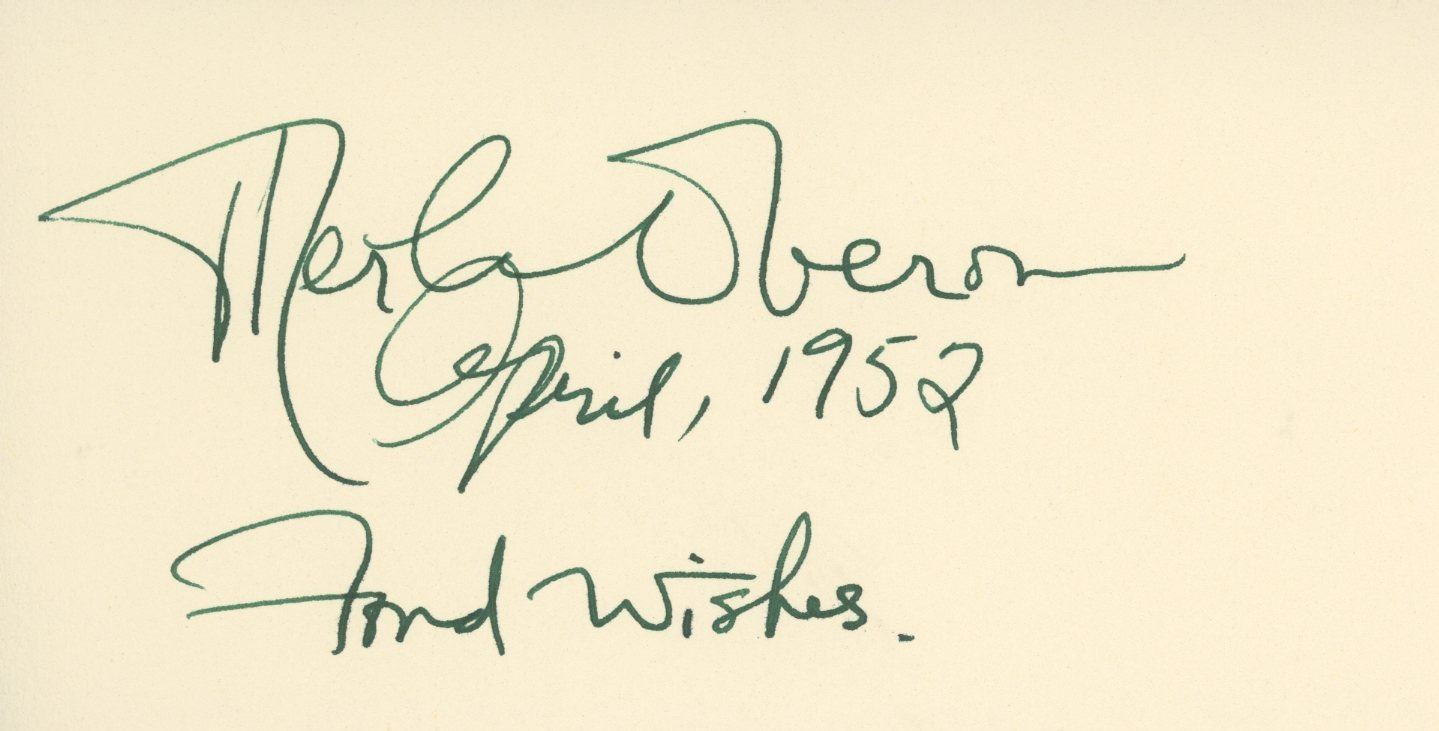 Merle Oberon
April, 1952
Fond Wishes.